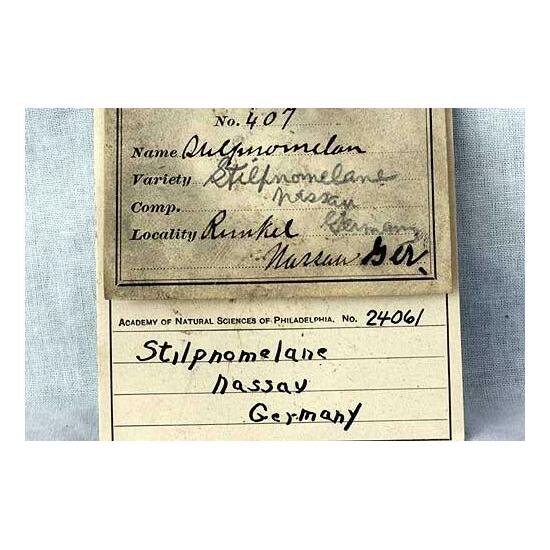 No. 407
Name Stilpnomelan
Variety Stilpnomelane
Nassau
Comp.
Germany
Locality Runkel
Nassau Ger.
ACADEMY OF NATURAL SCIENCES OF PHILADELPHIA. No. 24061
Stilpnomelane
Nassau
Germany